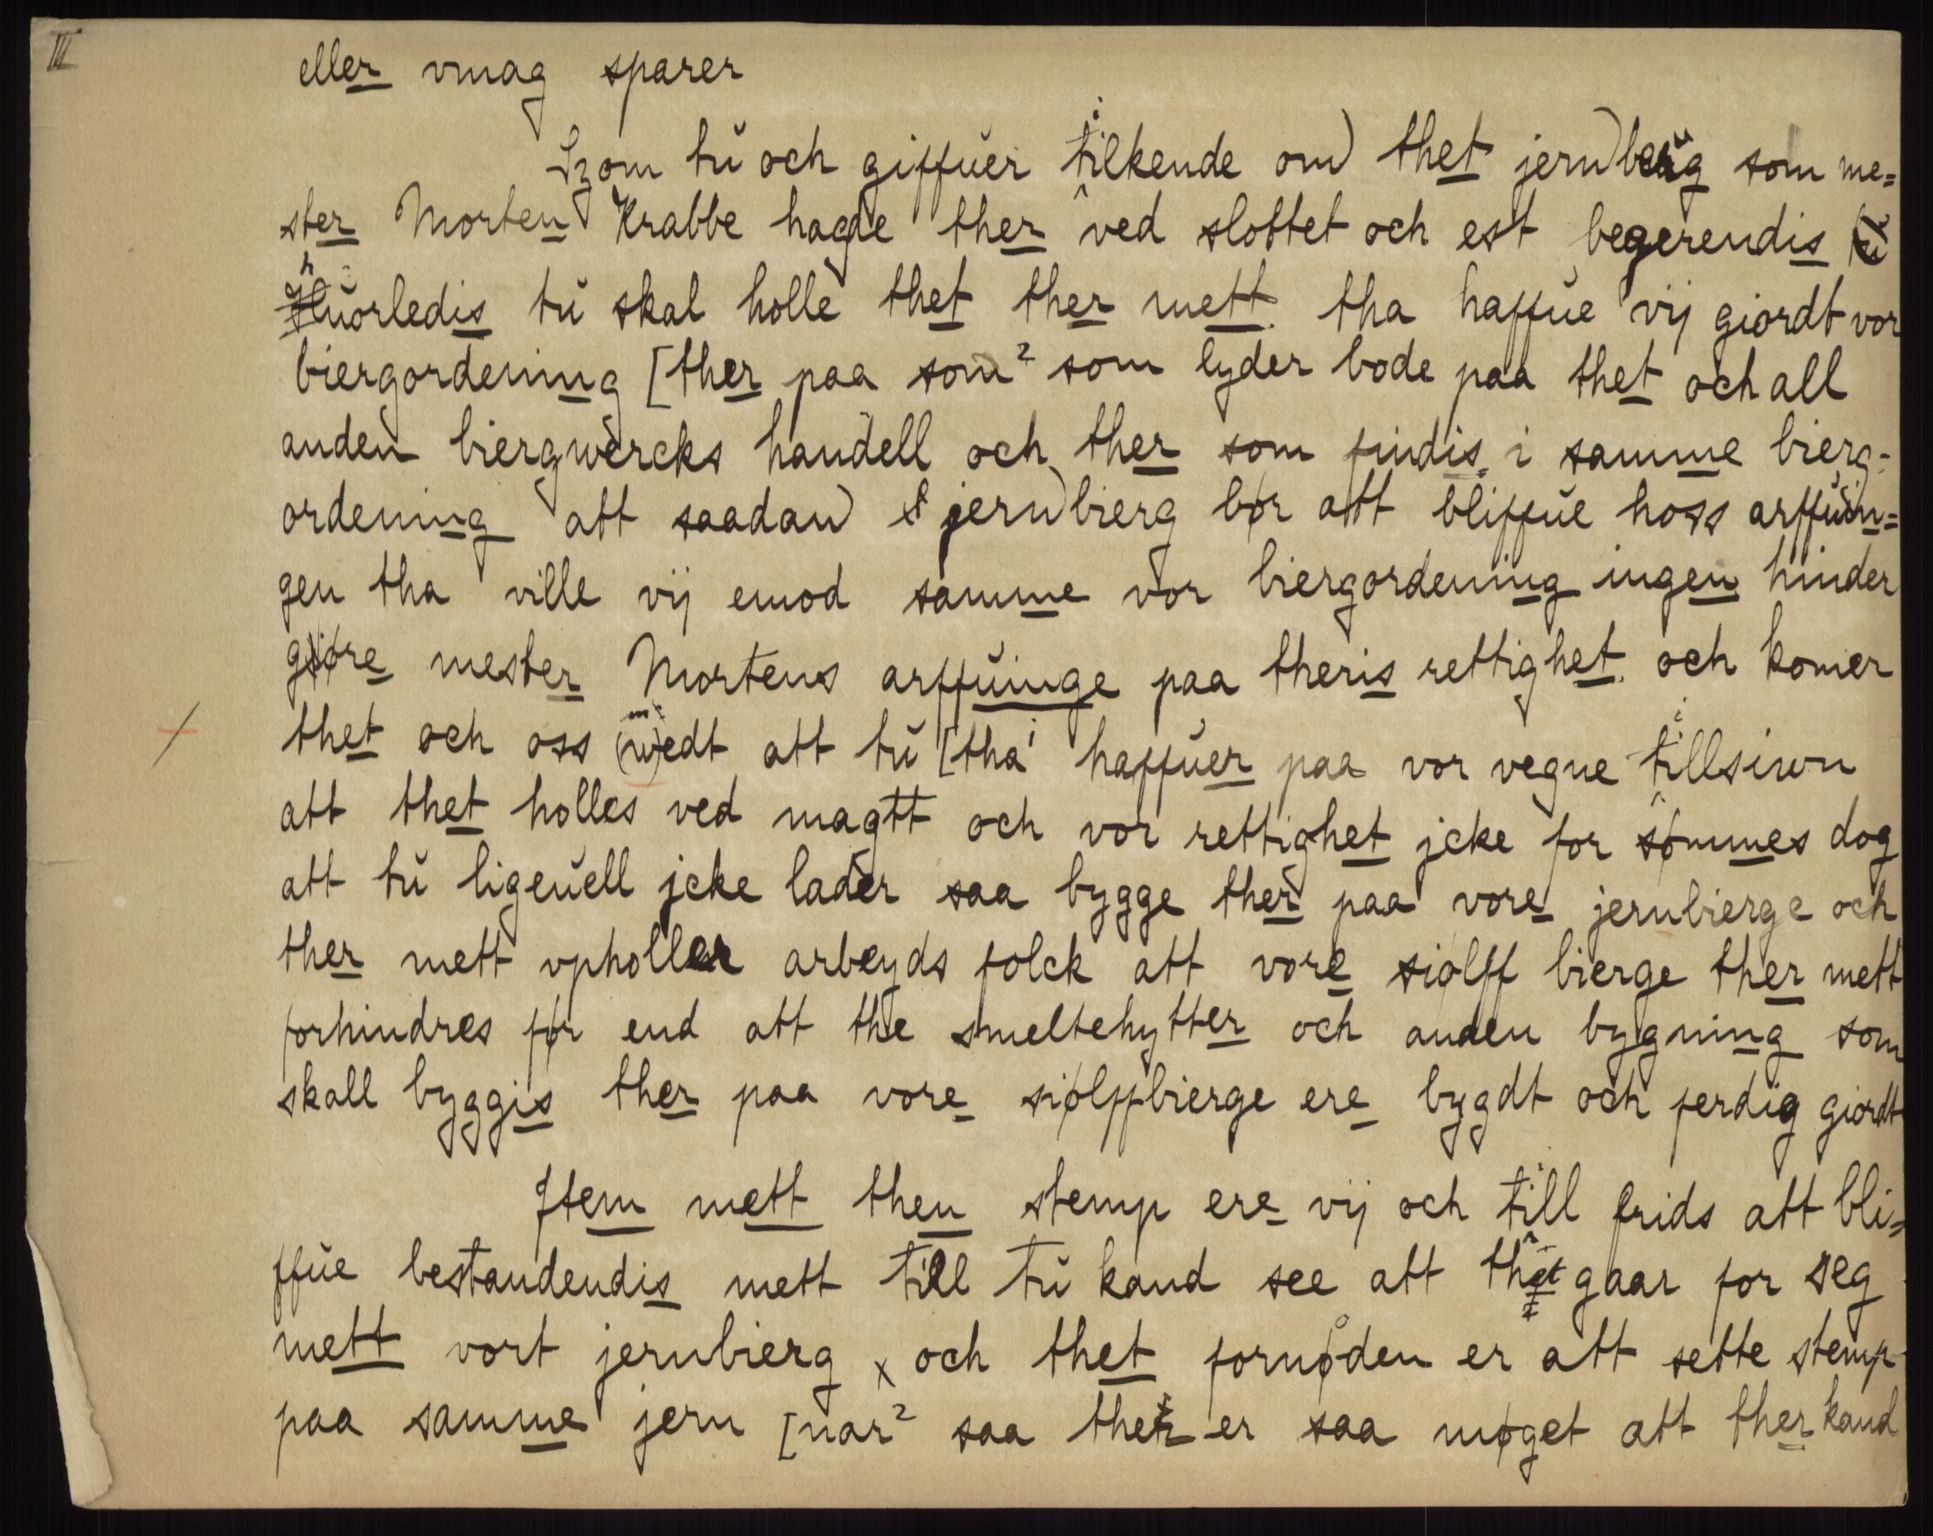 III
eller vmag sparer
Szom tŭ och giffŭer tilkende om thet jernberg som me=
ster Morten Krabbe hagde ther ved slottet och est begerendis
hŭorledis tŭ skal holle thet ther mett tha haffŭe vij giordt vor
biergordening [ther paa som² som lyder bode paa thet och all
anden biergwercks handell och ther som findis i samme bierg-
ordening att saadan jernbierg bør att bliffŭe hoss arffŭin=
gen tha ville vij emod samme vor biergordening ingen hinder
giøre mester Mortens arffŭinge paa theris rettighet och komer
thet och oss (w)edt att tŭ [tha¹ haffŭer paa vor vegne tillsiwn
att thet holles ved magtt och vor rettighet jcke for sømmes dog
att tŭ ligeŭell jcke lader saa bygge ther paa vore jernbierge och
ther mett vpholler arbeyds folck att vore siølff bierge ther mett
forhindres før end att the smeltehytter och anden bygning som
skall byggis ther paa vore siølffbierge ere bygdt och ferdig giordt
Jtem mett then stemp ere vij och till frids att bli=
ffŭe bestandendis mett till tŭ kand see att thet gaar for seg
mett vort jernbierg x och thet fornøden er att sette stemp
paa samme jern [nar² saa ther er saa møget att ther kand